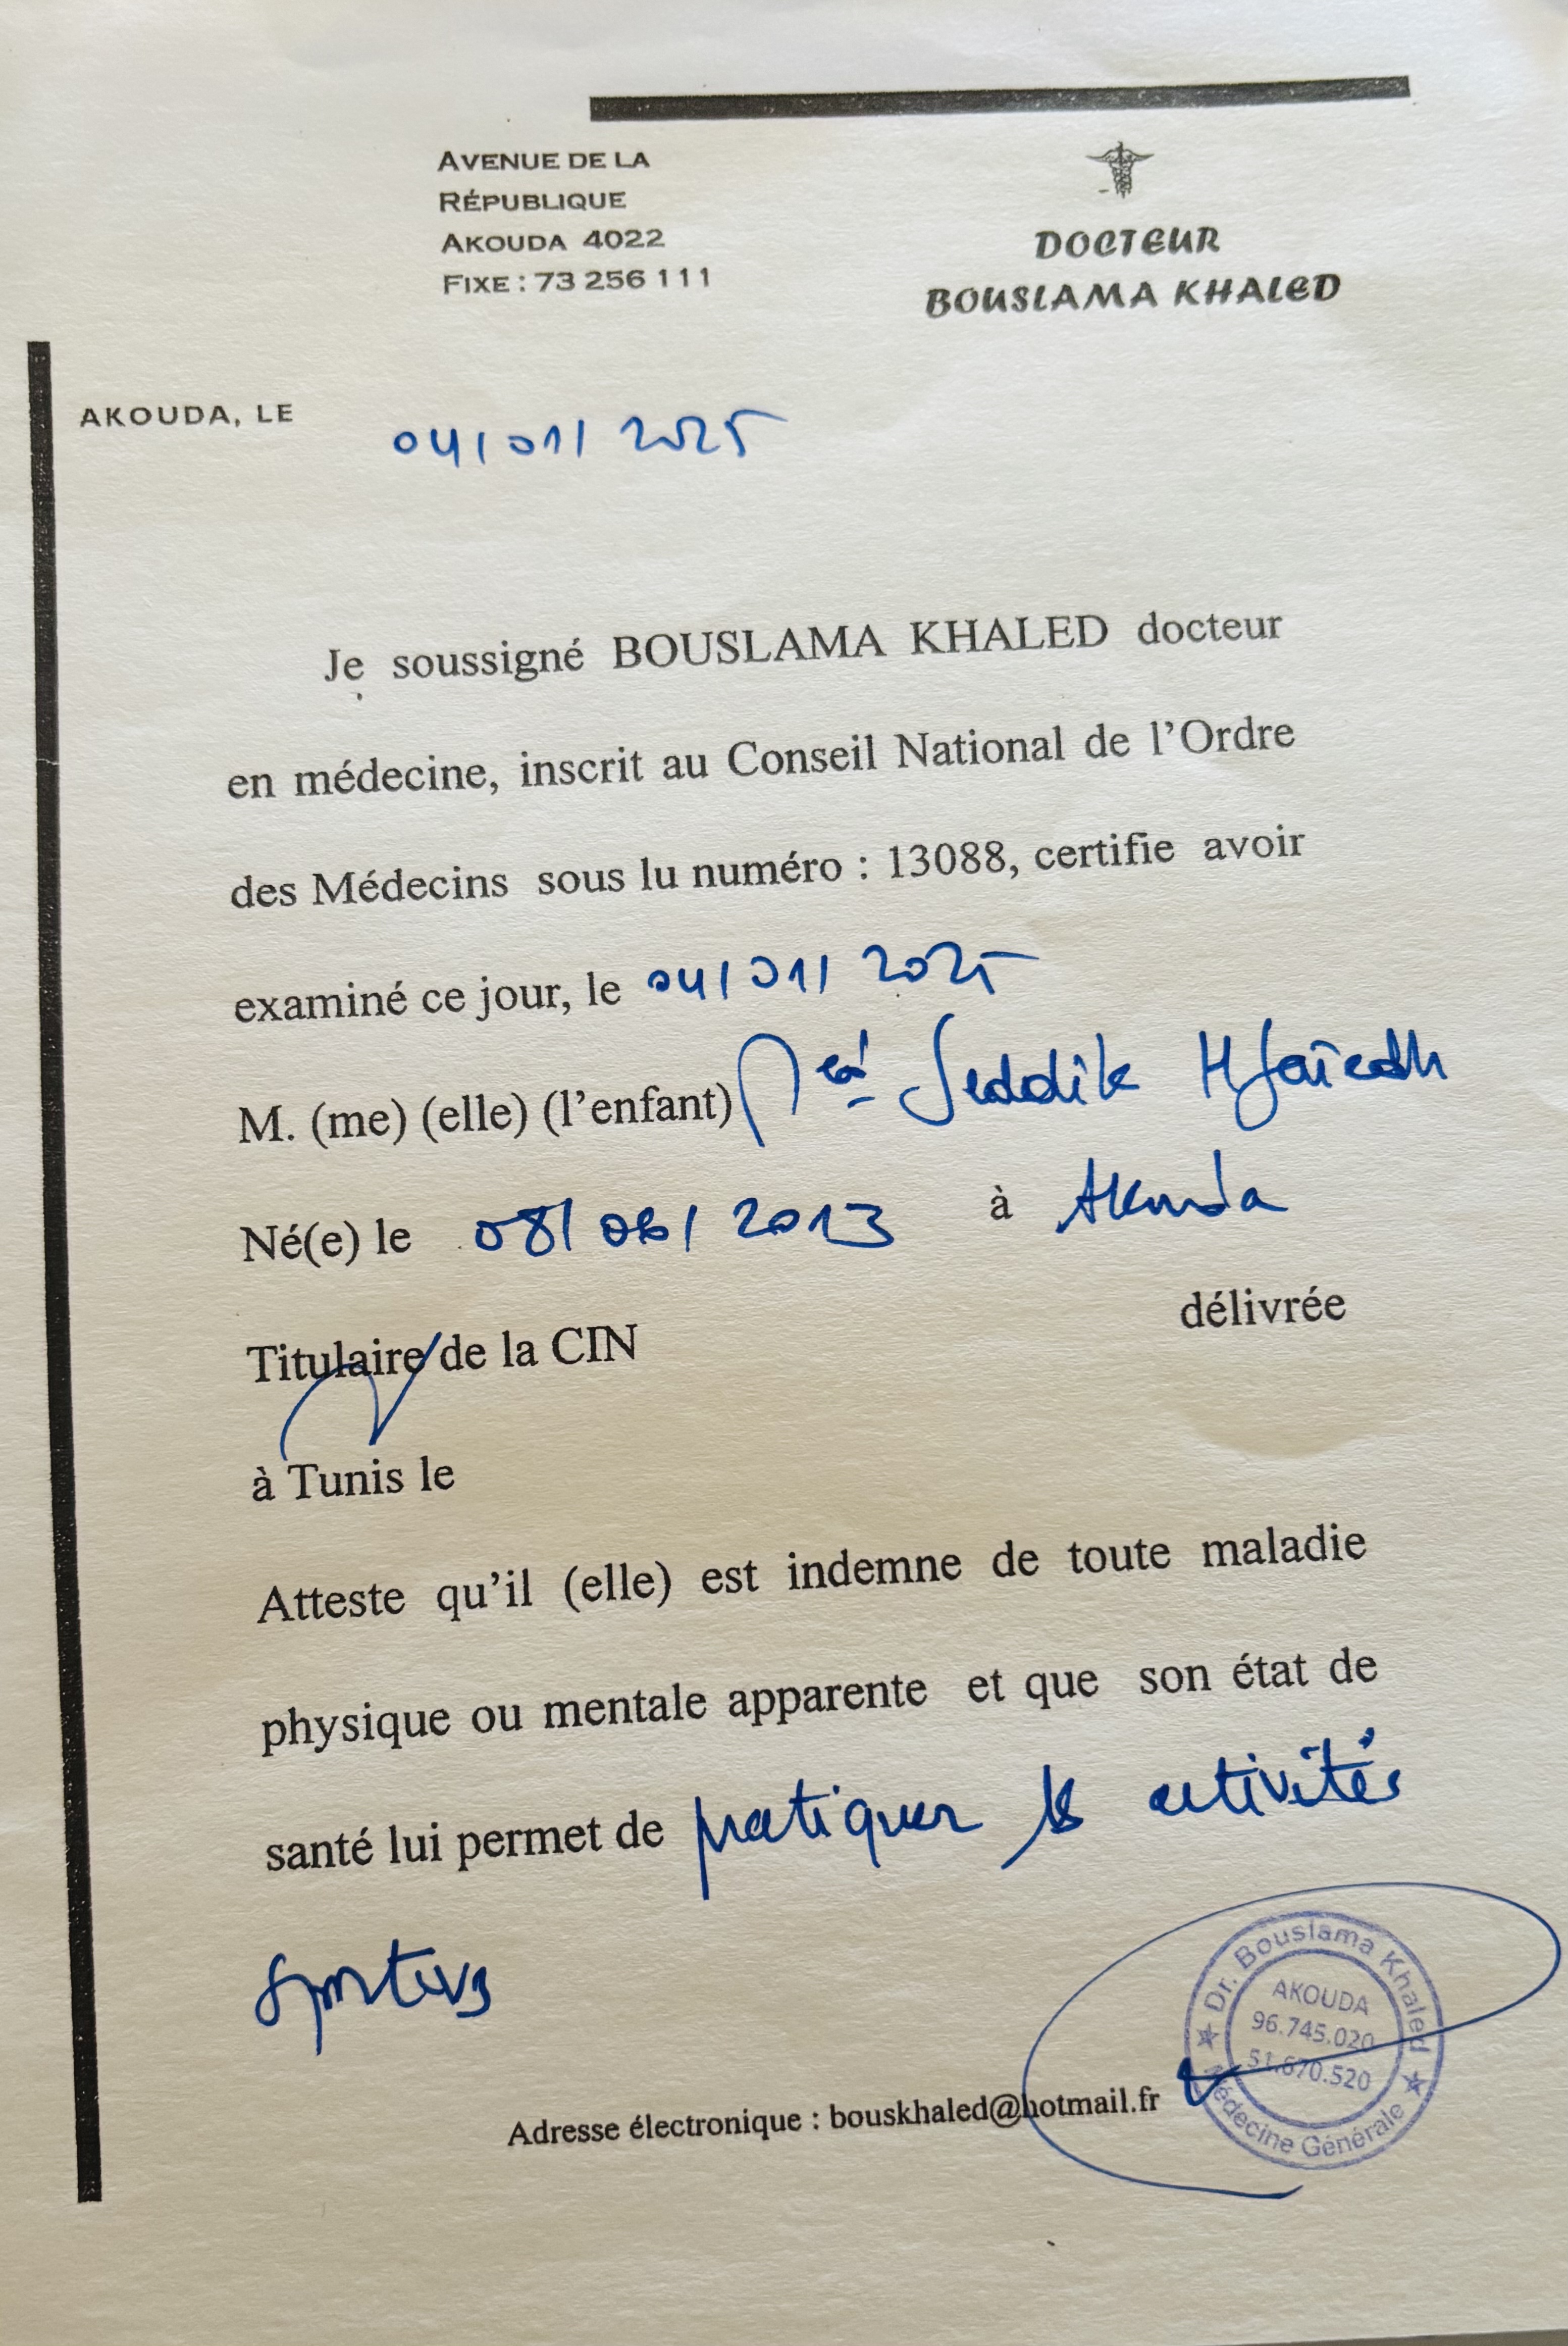 AVENUE DE LA
RÉPUBLIQUE
AKOUDA 4022
FIXE : 73 256 111
DOCTEUR
BOUSLAMA KHALED
AKOUDA, LE 04/01/2025
Je soussigné BOUSLAMA KHALED docteur
en médecine, inscrit au Conseil National de l'Ordre
des Médecins sous lu numéro : 13088, certifie avoir
examiné ce jour, le 04/01/2025
M. (me) (elle) (l'enfant) Seddik
Né(e) le 08/06/2013 à Akouda
Titulaire de la CIN délivrée
à Tunis le
Atteste qu'il (elle) est indemne de toute maladie
physique ou mentale apparente et que son état de
santé lui permet de pratiquer les activités
sportives
Adresse électronique : bouskhaled@hotmail.fr
Dr. Bouslama Khaled
AKOUDA
96.745.020
51.670.520
Médecine Générale